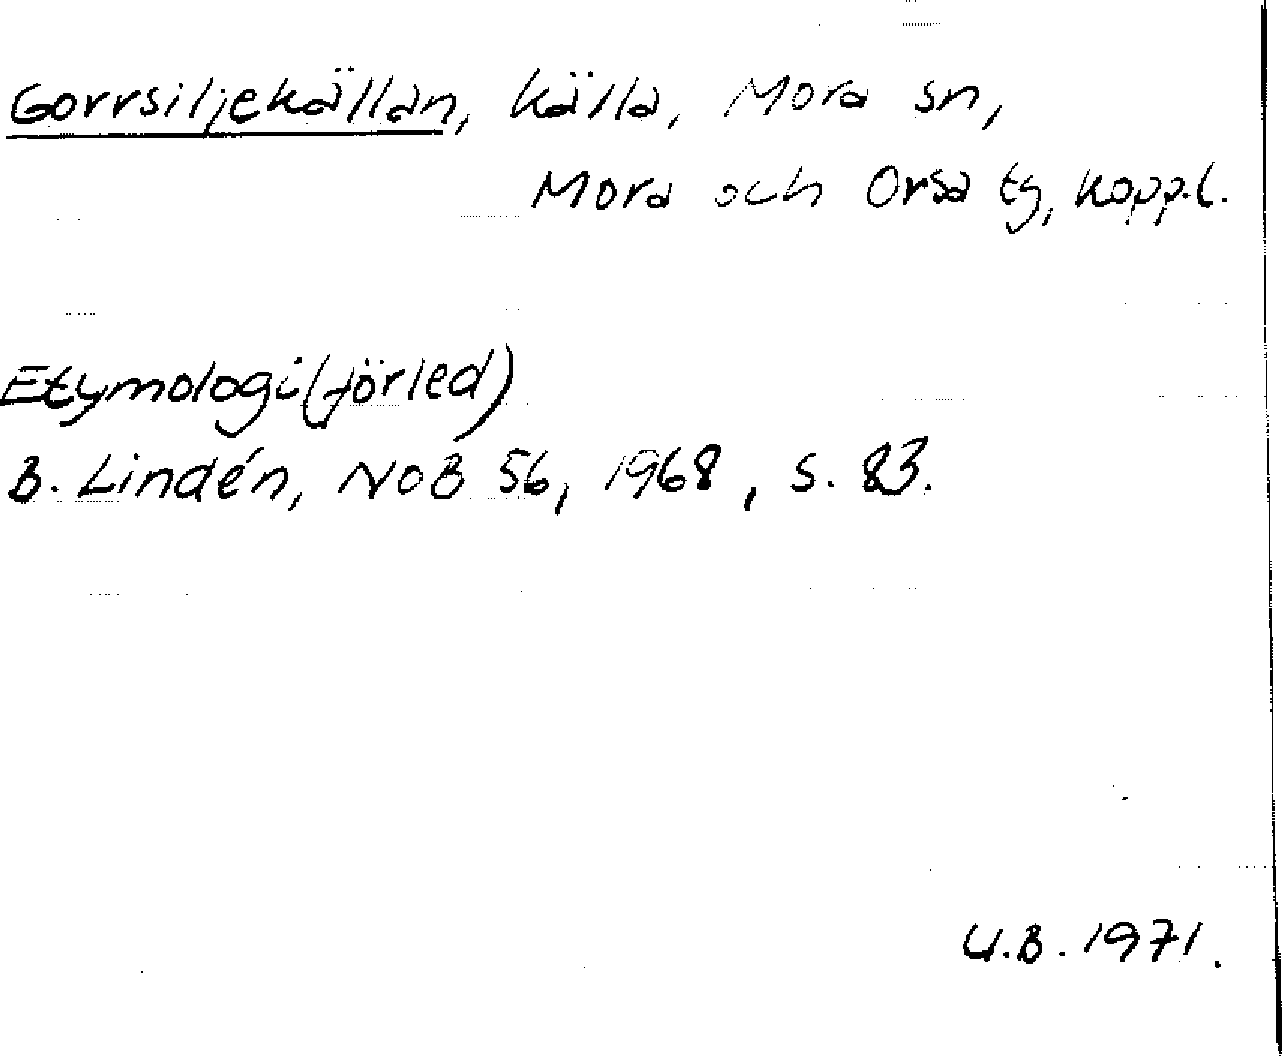 Gorrsiljekällan, källa, Mora sn,
Mora och Orsa tg, Kopp.l.
Etymologi (förled)
B. Lindén, NoB 56, 1968, s. 83.
U.B. 1971.